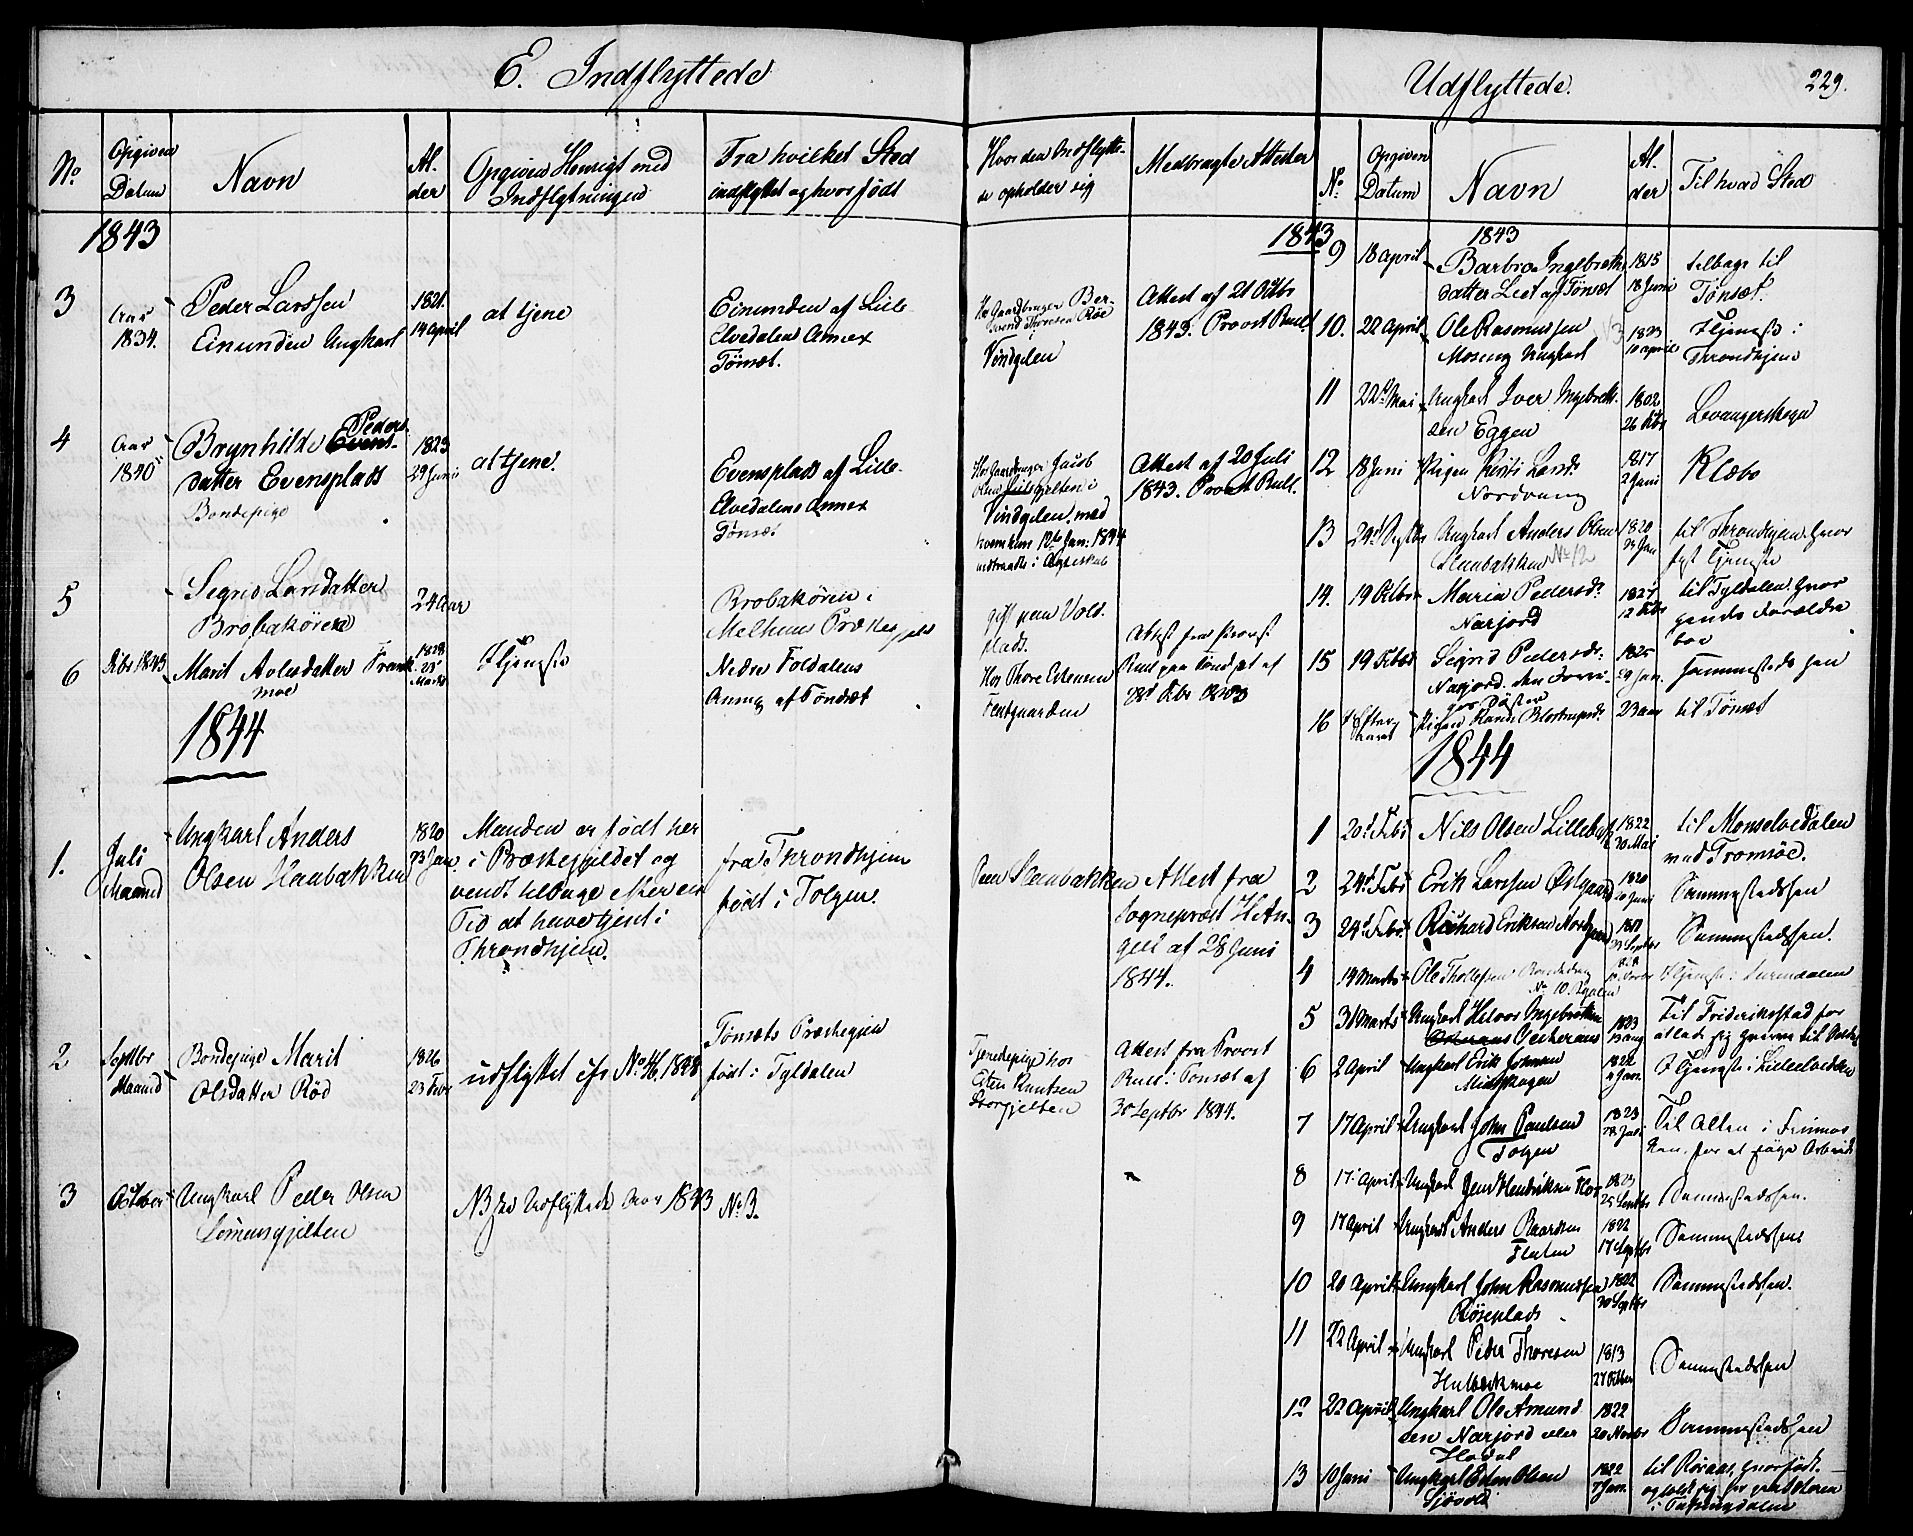 E. Indflyttede
No
Opgiven Datum
Navn
Al-
der
Opgiven Hensigt med
Indflytningen
Fra hvilket Sted
indflyttet og hvor født
Hvor den Indflytte-
de opholder sig
Medbragte Attester
1843
3
Aar
1834.
Peder Larssen
Einunden Ungkarl
1821.
14 April
at tjene
Einunden af Lille-
Elvedalen Annex
Tönsæt.
Vindgelen
Attest af 21 Octbr
1843. Provst Rull.
4
Aar
1840
Brynhilde Peders-
datter Evensplads
Bondepige
1823
29 Juni
at tjene.
Evensplads af Lille-
Elvedalens Annex
Tönsæt.
Hos Gaardbruger Jacob
Vindgelen, med
hvem hun 12te Jan: 1844
indtraadte i Ægteskab
Attest af 20 Juli
1843. Provst Rull.
5
Segrid Larsdatter
Brobakören
24 Aar
Brobakören i
Melhuus Præstegjeld
gift paa Vold-
plads.
6
Marit Arlusdatter Frank
moe
1828
25
Marts
I Tjeneste
Nedre Foldalens
Annex af Töndsæt
Hos Thore Estensen
Attest fra Provst
Rull paa Töndsæt af
1844
1.
Juli
Maaned
Ungkarl Anders
Olsen Haubakken
1820
23 Jan
Manden er født her
i Præstegjeldet og
vendt tilbage efter en
Tid at have tjent i
Throndhjem.
fra Throndhjem
født i Tolgen.
Paa Staubakken
Attest fra
Sogneprest H. An-
gell af 28 Juni
1844.
2
Septbr
Maaned
Bondepige Marit
Olsdatter Röd
1826
23 Febr
udflyttet cfr No 16. 1838
Tönsæts Præstegjeld
født i Tyldalen
Tjenestepige hos
Esten Knutsen
Storgjelten
Attest fra Provst
Rull i Tönsæt af
30 Septbr 1844.
3
October
Ungkarl Peder Olsen
Lomunsgjelten
NB see Udflyttede Aar 1843 No 3.
Udflyttede.
229.
No
Opgiven
Datum
Navn
Al-
der
Til hvad Sted
1843
9
18 April
Barbro Ingebrethes
datter Lest af Tönsæt
1815
18 Juni
tilbage til
Tönsæt.
10.
22 April
Ole Rasmussen
Moseng Ungkarl
1823
10 April
I Tjeneste i
Throndhjem
11
22de Mai
Ungkarl Iver Ingebrett-
sen Eggen
1802
26 Octbr
Levangerskogn
12
18 Juni
Pigen Kirsti Larsd:
Nordvang
1817
2 Juni
Klæbo
13
29de Septbr
Ungkarl Anders Olsen
Staubakken No 12
1820
23 Jan
til Throndhjem, hvor
fast Tjeneste
14.
19 Octbr
Maria Pedersd:
Narjord
1827
12 Octbr
til Tyldalen hvor
hendes Forældre
boe
15
19 Octbr
Segrid Pedersd:
Narjord. den Forri-
ges Söster
1825
29 Jan.
Sammesteds hen
16
Efter-
aaret
Pigen Karen Blostrupsd:
23 Aar
til Tönsæt
1844
1
20de Febr
Nils Olsen Lillebak
1822
30 Mai
til Monselvedalen
ved Tromsöe.
2
24de Febr
Erik Larssen Østgaard
1820
20 Juni
Sammestedshen
3
24de Febr
Richard Eriksen Nordgaard
Sammestedshen.
4
14 Marts
Ole Thollefsen
No 10.
I Tjeneste i Surendalen
5
31 Marts
Ungkarl Halvor Ingebretsen
1823
Til Friderikstad for
6
2 April
Ungkarl Erik Johnsen
Midtskogen
1822
4 Jan.
I Tjeneste i Lilleelvedalen
7
17 April
Ungkarl John Paulsen
Tolgen
1823
28 Juli
Til Alten i Finmar-
ken, for at söge Arbeide
8
17 April
Ungkarl Jens Hendriksen Hos
1823
25 Septbr
Sammestedshen.
9
17 April
Ungkarl Anders Baardsen
Flaten
1822
17 Septbr
Sammestedshen
10
20 April
Ungkarl John Rasmussen
Röseplads
1822
30 Septbr
Sammestedshen.
11
22 April
Ungkarl Peder Thoresen
Hulbækmoe
1813
27 Octbr
Sammestedshen
12
22 April
Ungkarl Ole Amund-
sen Narjord eller
Hodal
1822
20 Novbr
Sammestedshen
13
10 Juni
Ungkarl Esten Olsen
Sjövold
1822
7 Jan.
til Röraas, hvor født